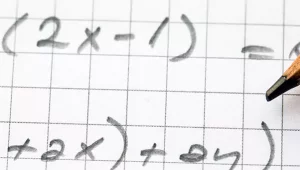 (2x-1) =
+2x)+2y)